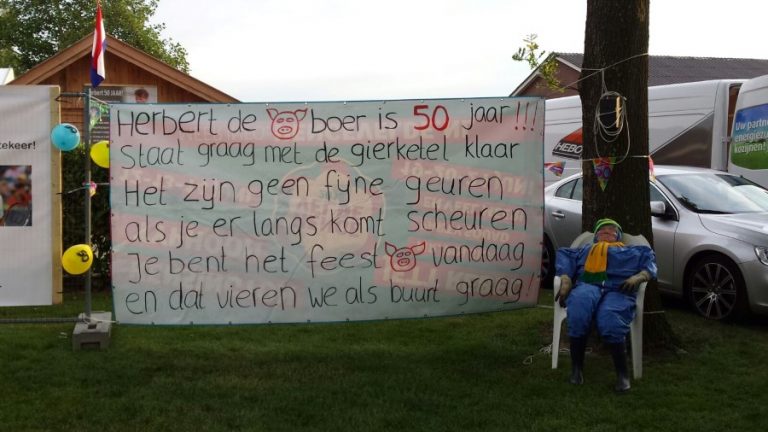 Herbert de boer is 50 jaar!!!
Staat graag met de gierketel klaar
Het zijn geen fijne geuren
als je er langs komt scheuren
Je bent het feest vandaag
en dat vieren we als buurt graag!
tekeer!
Herbert 50 JAAR!
HEBO
Uw partner
energiezu
kozijnen!